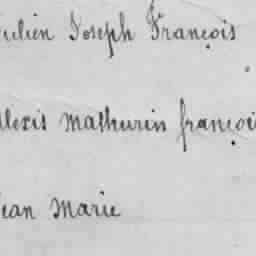 Julien Joseph François
Alexis Mathurin françois
Jean Marie